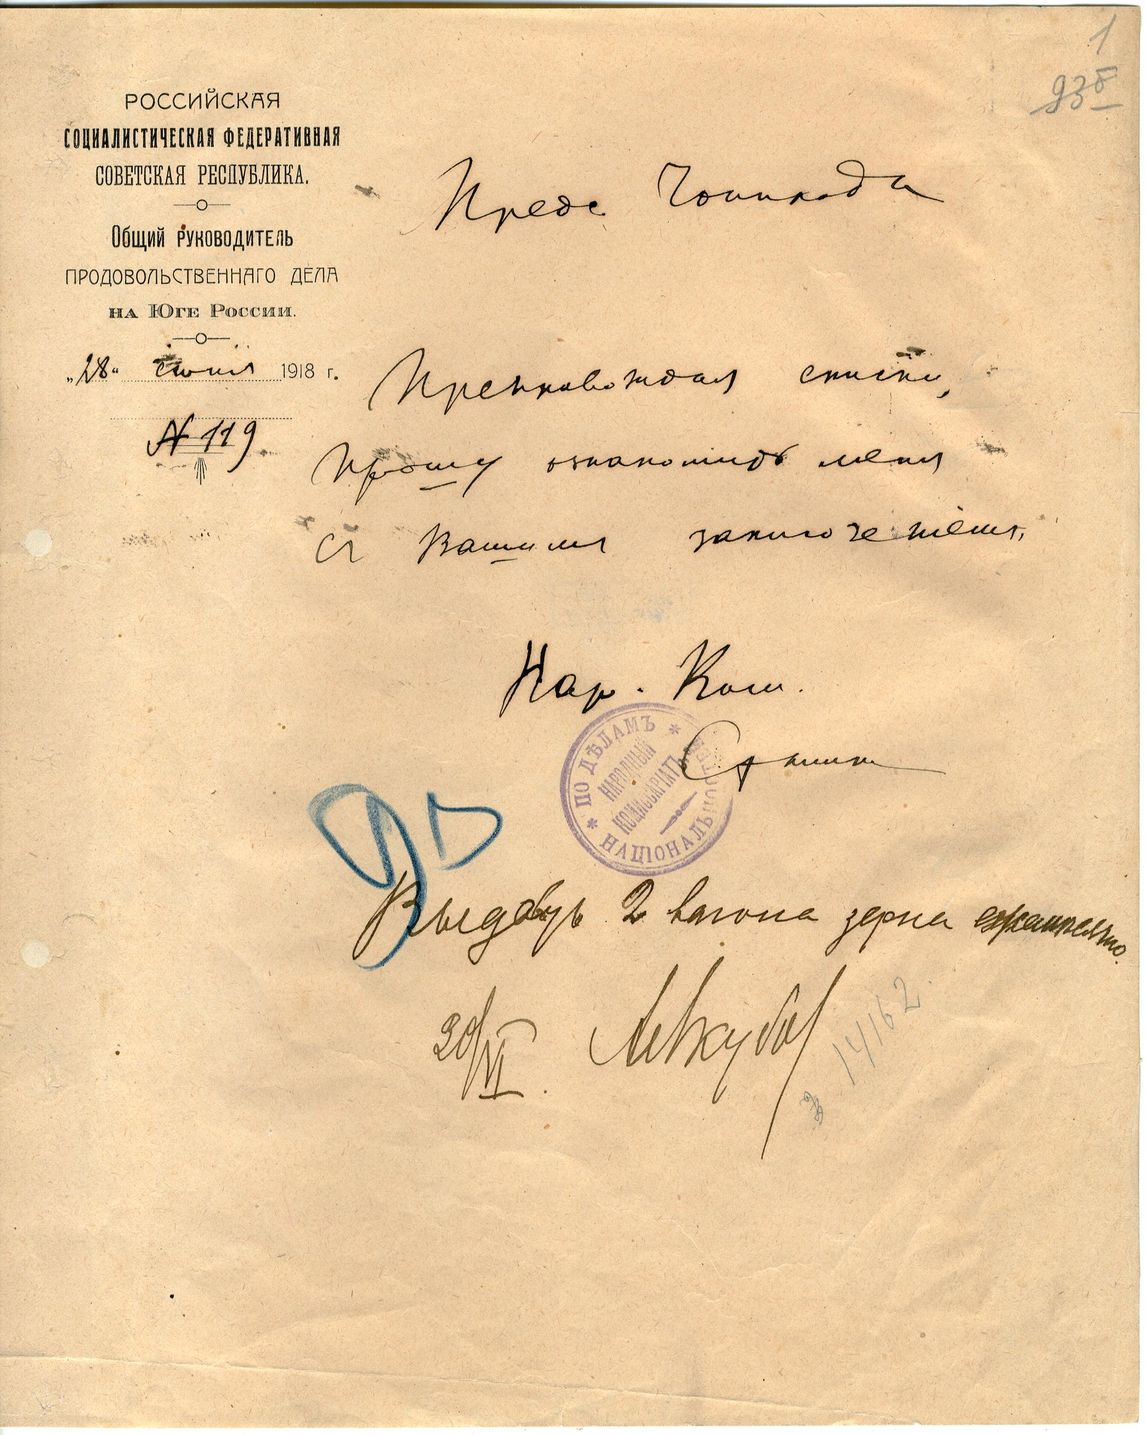 1
93б
РОССИЙСКАЯ
СОЦИАЛИСТИЧЕСКАЯ ФЕДЕРАТИВНАЯ
СОВЕТСКАЯ РЕСПУБЛИКА.
Общий руководитель
ПРОДОВОЛЬСТВЕННАГО ДЕЛА
на Юге России.
„28“ июня 1918 г.
№ 119.
Предс. Чокпрода
Препровождая списки,
прошу ознакомить меня
с Вашим заключением.
Нар. Ком.
Сталин
* ПО ДѢЛАМЪ * НАЦІОНАЛЬНОСТЕЙ
НАРОДНЫЙ КОМИССАРІАТЪ
2 вагона зерна
/VI.
14162.